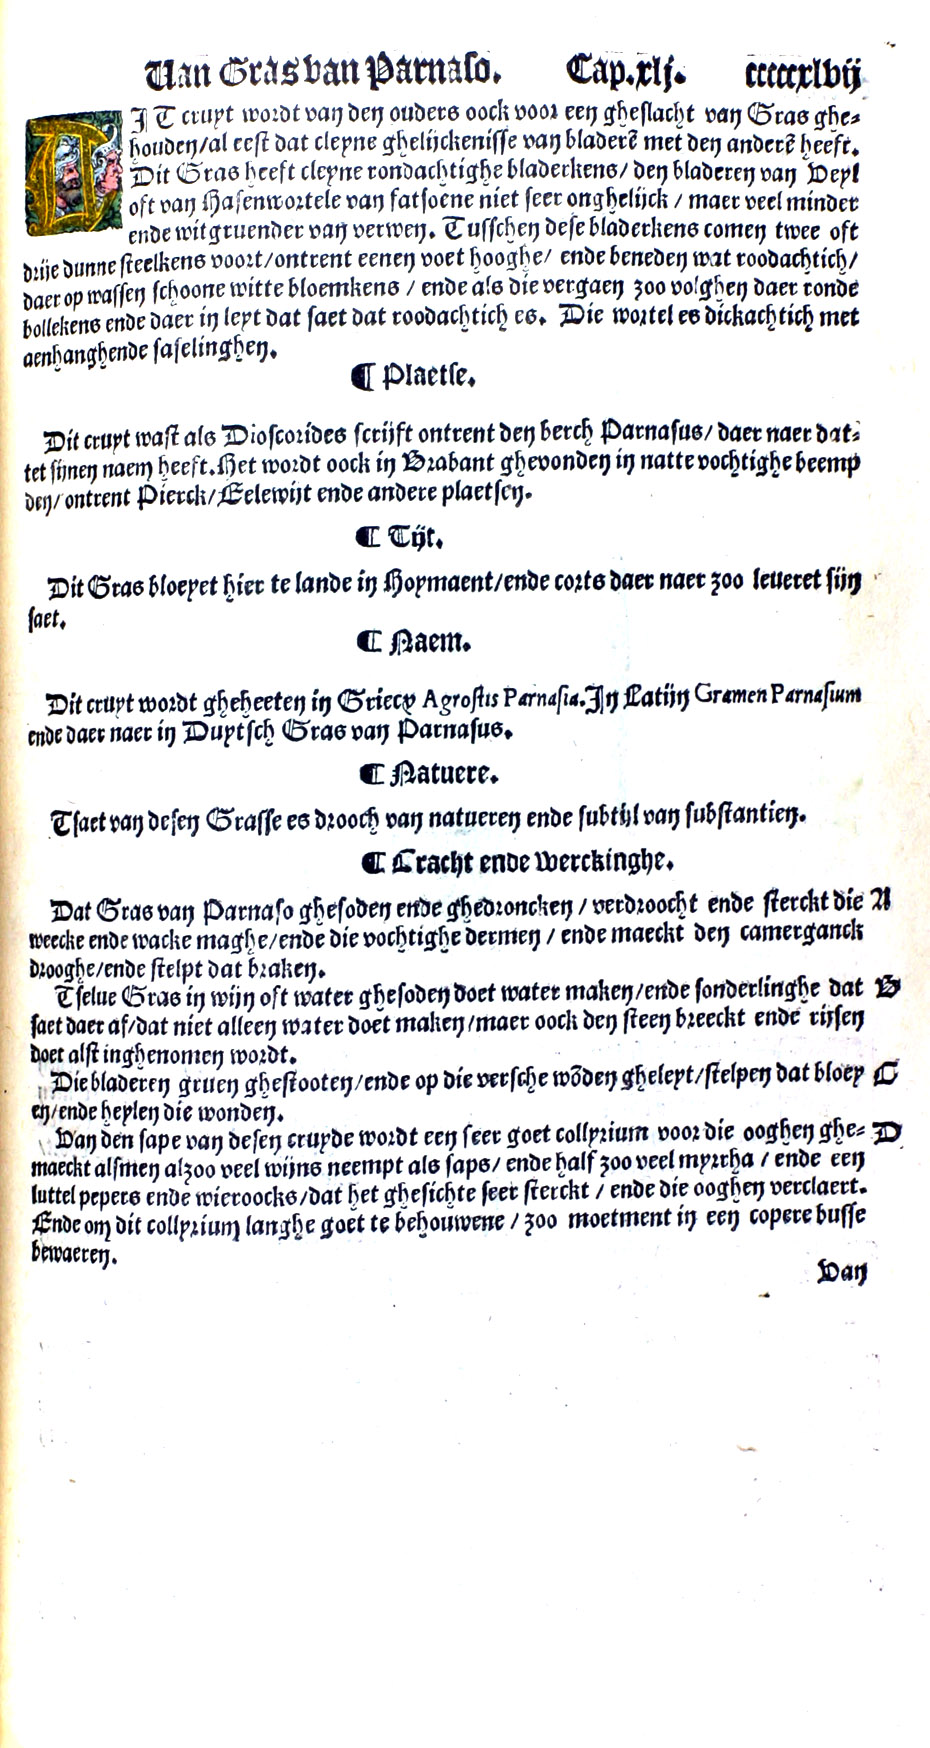 Van Gras van Parnaso. Cap.xlj. cccccxlvij
DIT cruyt wordt van den ouders oock voor een gheslacht van Gras ghe⸗
houden/al eest dat cleyne ghelijckenisse van bladerē met den anderē heeft.
Dit Gras heeft cleyne rondachtighe bladerkens/ den bladeren van Veyl
oft van Hasenwortele van fatsoene niet seer onghelijck / maer veel minder
ende witgruender van verwen. Tusschen dese bladerkens comen twee oft
drije dunne steelkens voort/ontrent eenen voet hooghe/ ende beneden wat roodachtich/
daer op wassen schoone witte bloemkens / ende als die vergaen zoo volghen daer ronde
bollekens ende daer in leyt dat saet dat roodachtich es. Die wortel es dickachtich met
aenhanghende faselinghen.
¶ Plaetse.
Dit cruyt wast als Dioscorides scrijft ontrent den berch Parnasus/ daer naer dat⸗
tet sijnen naem heeft. Het wordt oock in Brabant ghevonden in natte vochtighe beemp
den/ ontrent Pierck/Eelewijt ende andere plaetsen.
¶ Tijt.
Dit Gras bloeyet hier te lande in Hoymaent/ende corts daer naer zoo leueret sijn
saet.
¶ Naem.
Dit cruyt wordt gheheeten in Griecx Agrostis Parnasia. In Latijn Gramen Parnasium
ende daer naer in Duytsch Gras van Parnasus.
¶ Natuere.
Tsaet van desen Grasse es drooch van natueren ende subtijl van substantien.
¶ Cracht ende werckinghe.
Dat Gras van Parnaso ghesoden ende ghedroncken / verdroocht ende sterckt die A
weecke ende wacke maghe/ende die vochtighe dermen / ende maeckt den camerganck
drooghe/ende stelpt dat braken.
Tselue Gras in wijn oft water ghesoden doet water maken/ende sonderlinghe dat B
saet daer af/dat niet alleen water doet maken/maer oock den steen breeckt ende rijsen
doet alst inghenomen wordt.
Die bladeren gruen ghestooten/ende op die versche wōden gheleyt/stelpen dat bloey C
en/ende heylen die wonden.
Van den sape van desen cruyde wordt een seer goet collyrium voor die ooghen ghe⸗ D
maeckt alsmen alzoo veel wijns neempt als saps/ ende half zoo veel myrrha / ende een
luttel pepers ende wieroocks/dat het ghesichte seer sterckt / ende die ooghen verclaert.
Ende om dit collyrium langhe goet te behouwene / zoo moetment in een copere busse
bewaeren.
Van